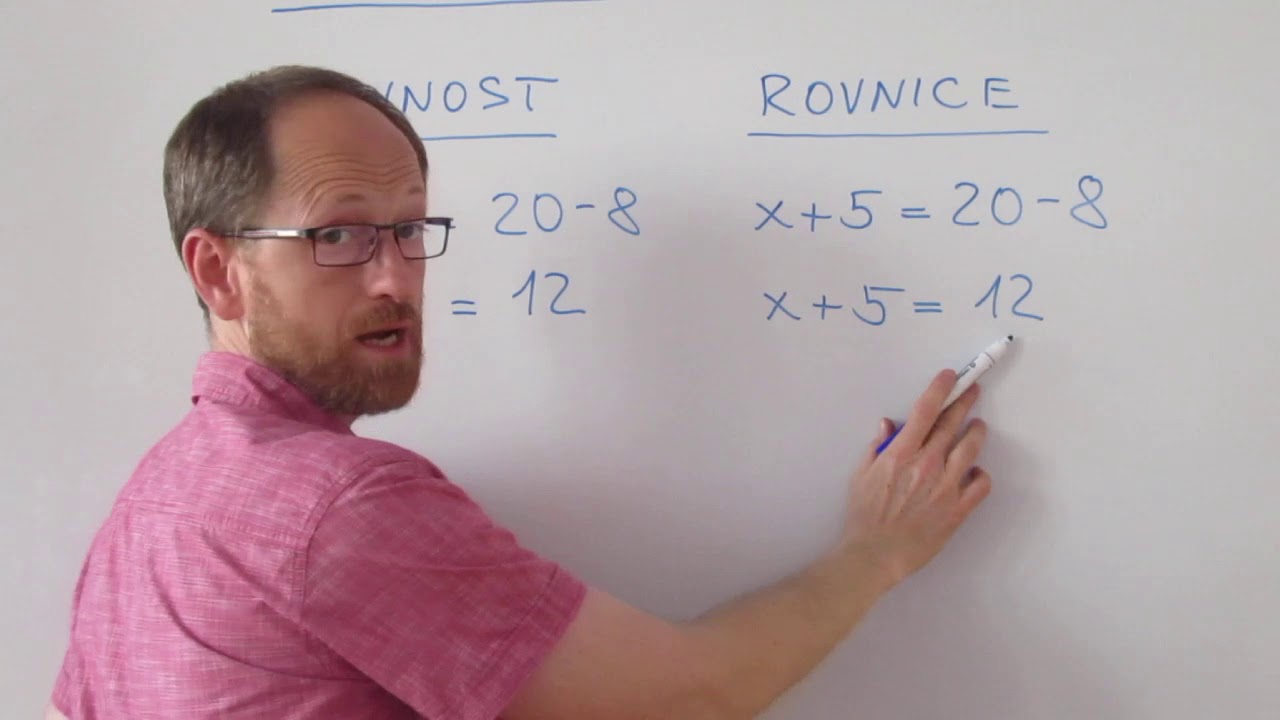 VNOST
20-8
= 12
ROVNICE
x+5 = 20-8
x+5 = 12